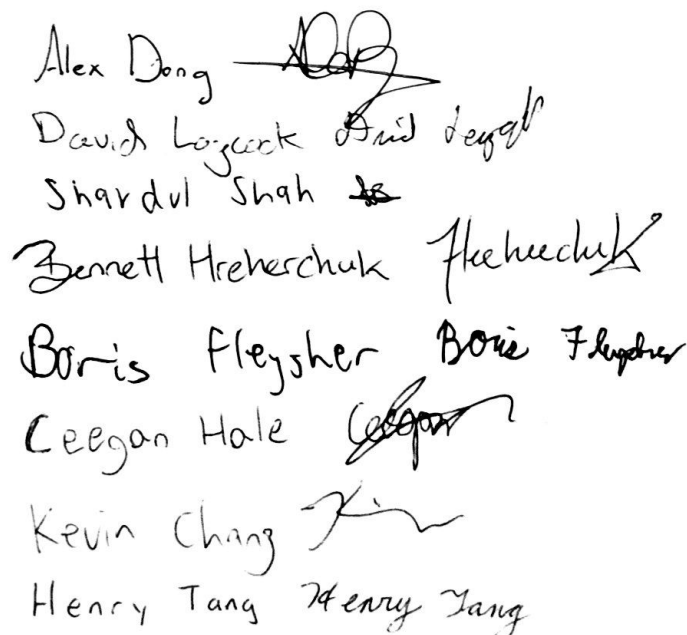 Alex Dong
David Laycock David Laycock
Shardul Shah SS
Bennett Hreherchuk Hreherchuk
Boris Fleysher Boris Fleysher
Ceegan Hale Ceegan
Kevin Chang
Henry Tang Henry Tang